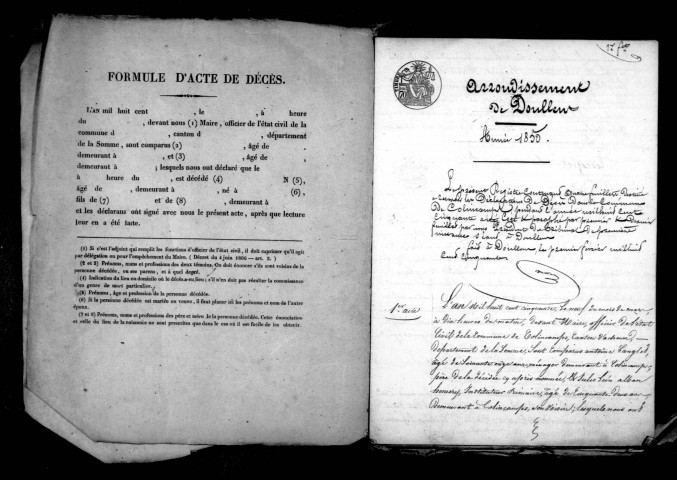 FORMULE D'ACTE DE DÉCÈS.
L'AN mil huit cent , le , à heure
du , devant nous (1) Maire, officier de l'état civil de la
commune d , canton d , département
de la Somme, sont comparus (2) , âgé de
demeurant à , et (3) , âgé de
demeurant à ; lesquels nous ont déclaré que le
à heure du , est décédé (4) N (5),
âgé de , demeurant à , né à (6),
fils de (7) et de (8) , demeurant à
et les déclarans ont signé avec nous le présent acte, après que lecture
leur en a été faite.
(1) Si c'est l'adjoint qui remplit les fonctions d'officier de l'état civil, il doit exprimer qu'il agit
par délégation ou pour l'empêchement du Maire. (Décret du 4 juin 1806 — art. 2.)
(2 et 3) Prénoms, noms et professions des deux témoins. On doit énoncer s'ils sont voisins de la
personne décédée, ou ses parens, et à quel degré.
(4) Indication du lieu ou domicile où le décès a eu lieu; s'il n'en doit pas résulter la connaissance
d'un genre de mort particulier.
(5) Prénoms, âge et profession de la personne décédée.
(6) Si la personne décédée est mariée ou veuve, il faut placer ici les prénoms et nom de l'autre
époux.
(7 et 8) Prénoms, noms et professions des père et mère de la personne décédée. Cette énonciation
et celle du lieu de la naissance ne sont prescrites que dans le cas où il est facile de les obtenir.
Arrondissement
de Doullens
Année 1850.
Le présent Registre contenant quatre feuillets destiné
à servir les Déclarations de Décès dans la Commune
de Colincamps pendant l'année mil huit cent
cinquante
feuillet par nous Président du Tribunal de première
instance séant à Doullens
fait à Doullens, le premier février mil huit
cent cinquante
1er acte
L'an mil huit cent cinquante, le neuf du mois de mars
à dix heures du matin, devant Maire, officier de l'état
Civil de la Commune de Colincamps, Canton d'acheux,
Département de la Somme, Sont comparus antoine Langlet,
âgé de soixante onze ans, ménager demeurant à Colincamps,
père de la décédée ci après nommée, et
Instituteur Primaire, âgé de cinquante deux ans
Demeurant à Colincamps, son voisin, lesquels nous ont